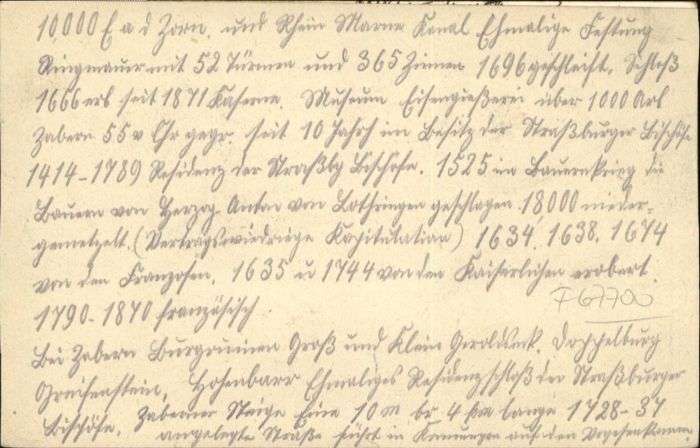 10000 E a d Zorn. und Rhein Marne Kanal Ehmalige Festung
Ringmauer mit 52 Türmen und 365 Zinnen 1696 geschleift. Schloß
1666 erb seit 1871 Kaserne. Museum Eisengießerei über 1000 Arb
Zabern 55 v Chr gegr. seit 10 Jahrh im Besitz der Straßburger Bischöfe
1414-1789 Residenz der Straßbg Bischöfe. 1525 im Bauernkrieg die
Bauern von Herzog Anton von Lothringen geschlagen 18000 nieder-
gemetzelt. (Vertragswiedriege Kapitulation) 1634. 1638. 1674
von den Franzosen. 1635 u 1744 von den Kaiserlichen erobert.
1790-1870 französisch.
F 67700
Bei Zabern Burgruinen Groß und Klein Geroldseck. Doppelburg
Greifenstein, Hohenbarr Ehmaliges Residenzschloß der Straßburger
Bischöfe. Zaberner Steige Eine 10 m br 4 km lange 1728-37
angelegte Straße führt in Kehrungen auf den Vogesenkamm